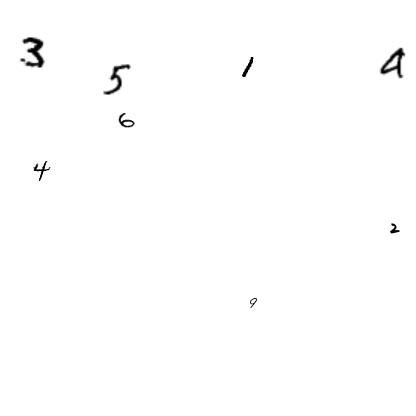 3 5 1 4
6
4
2
9